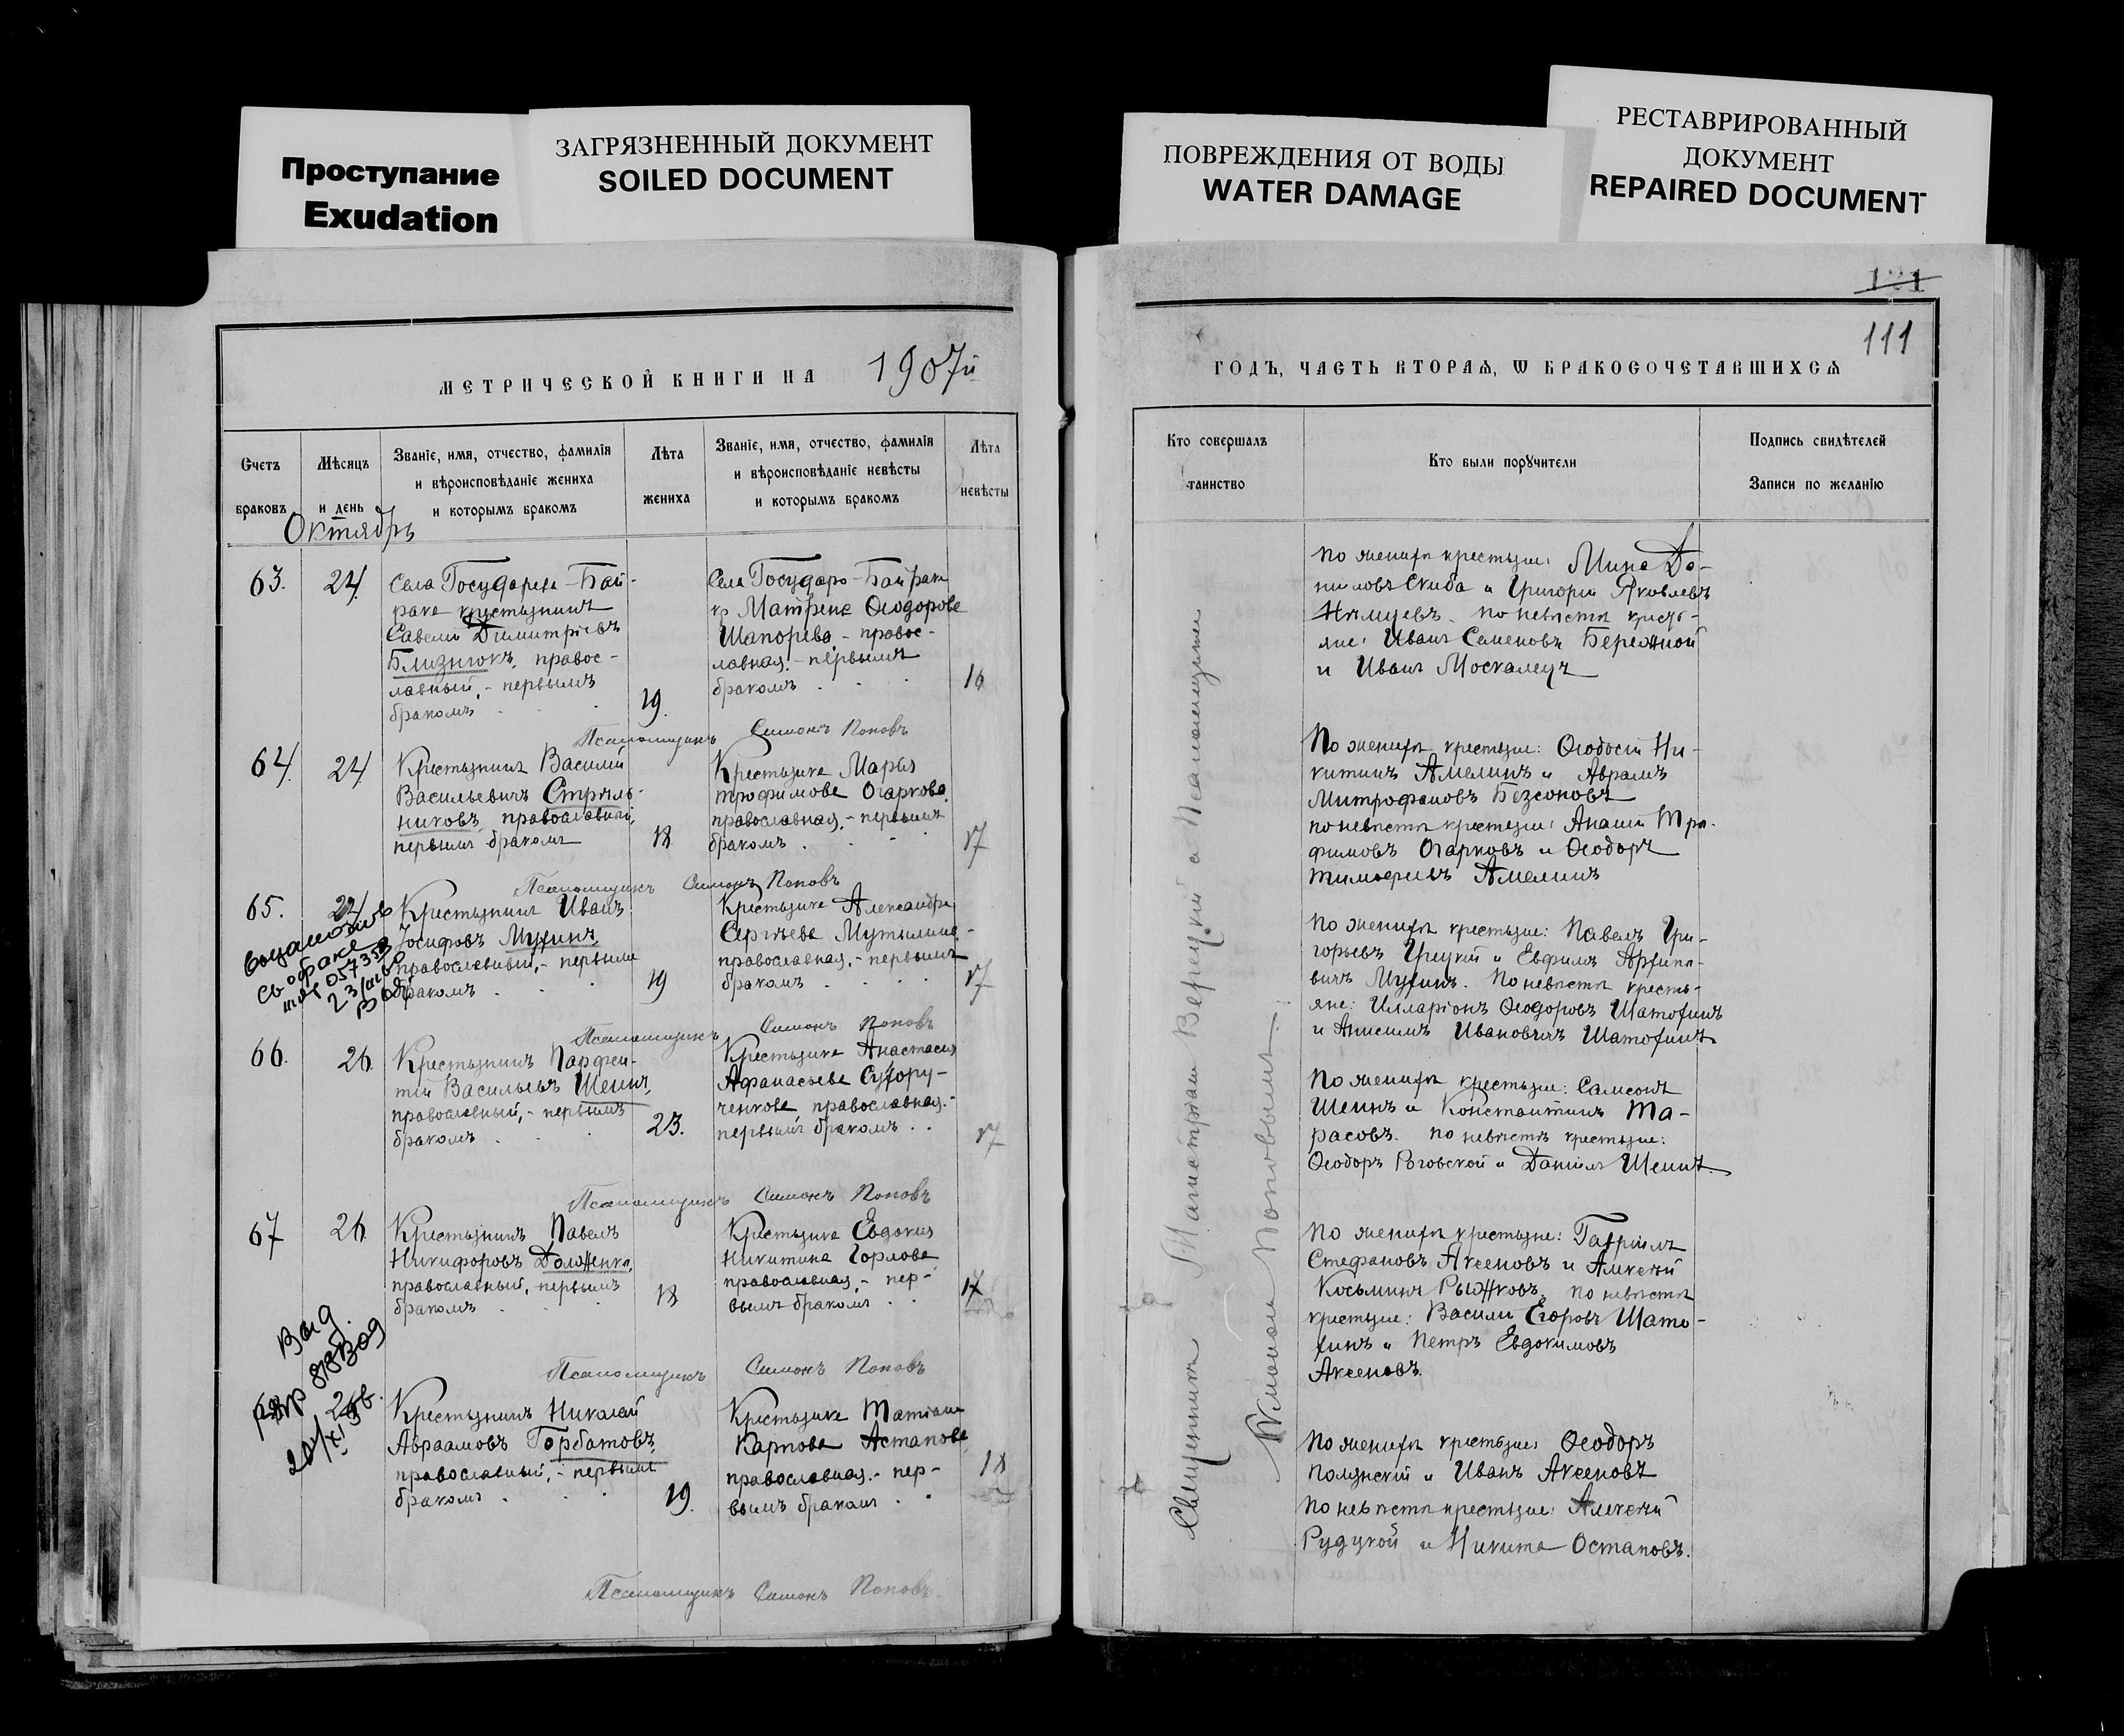 Проступание
Exudation
ЗАГРЯЗНЕННЫЙ ДОКУМЕНТ
SOILED DOCUMENT
ПОВРЕЖДЕНИЯ ОТ ВОДЫ
WATER DAMAGE
РЕСТАВРИРОВАННЫЙ
ДОКУМЕНТ
REPAIRED DOCUMENT
МЕТРИЧЕСКОЙ КНИГИ НА 1907й
Счетъ
браковъ
Мѣсяцъ
и день
Званіе, имя, отчество, фамилія
и вѣроисповѣданіе жениха
и которымъ бракомъ
Лѣта
жениха
Званіе, имя, отчество, фамилія
и вѣроисповѣданіе невѣсты
и которымъ бракомъ
Лѣта
невѣсты
Октябрь
63.
24.
Села Государева-Бай-
рака крестьянинъ
Савелій Димитріевъ
Близнюкъ, правос-
лавный, - первымъ
бракомъ
19.
Села Государ-Байрак
кр Матрена Ѳеодорова
Шапорева - правос-
лавная. - первымъ
бракомъ
16
Псаломщикъ Симонъ Поповъ
64.
24.
Крестьянинъ Василий
Васильевичъ Стрѣль-
никовъ, православный,
первымъ бракомъ
18
Крестьянка Марья
Трофимова Огаркова
православная, - первымъ
бракомъ
17
Псаломщикъ Симонъ Поповъ
65.
24
Крестьянинъ Иванъ
Іосифовъ Мухинъ,
православный, - первымъ
бракомъ
19
Крестьянка Александра
Сергѣева Мутилина -
православная, - первымъ
бракомъ
17
о браке
23/
Псаломщикъ Симонъ Поповъ
66.
26.
Крестьянинъ Парфен-
тій Васильевъ Шеинъ,
православный, - первымъ
бракомъ
23.
Крестьянка Анастасия
Афанасьева Сухору-
ченкова, православная. -
первымъ бракомъ
17
Псаломщикъ Симонъ Поповъ
67
26.
Крестьянинъ Павелъ
Никифоровъ Долженко,
православный, первымъ
бракомъ
18
Крестьянка Евдокия
Никитина Горлова
православная, - пер-
вымъ бракомъ
17
Псаломщикъ Симонъ Поповъ
Выд.
Крестьянинъ Николай
Авраамовъ Горбатовъ,
православный, - первымъ
бракомъ
19.
Крестьянка Татіана
Карпова Астапова
православная. - пер-
вымъ бракомъ
18
Псаломщикъ Симонъ Поповъ
111
ГОДЪ, ЧАСТЬ ВТОРАЯ, Ѿ БРАКОСОЧЕТАВШИХСЯ
Кто совершалъ
таинство
Кто были поручители
Подпись свидѣтелей
Записи по желанію
Священникъ Верецкій а Псаломщикъ
Симономъ Поповымъ
По женихѣ крестьяне: Мина Да-
ниловъ Скиба и Григорій Яковлевъ
Нямцевъ. по невѣстѣ кресть-
яне: Иванъ Семеновъ Бережной
и Иванъ Москалецъ
По женихѣ крестьяне: Ѳеодосій Ни-
китинъ Амелинъ и Аврамъ
Митрофановъ Безсоновъ
по невѣстѣ крестьяне: Ананій Тро-
фимовъ Огарковъ и Ѳеодоръ
Тимоѳеевъ Амелинъ
По женихѣ крестьяне: Павелъ Гри-
горьевъ Грецкій и Евфимъ Архипо-
вичъ Мухинъ. По невѣстѣ кресть-
яне: Илларіонъ Ѳеодоровъ Шатохинъ
и Анисимъ Ивановичъ Шатохинъ
По женихѣ крестьяне: Самсонъ
Шеинъ и Константинъ Та-
расовъ. по невѣстѣ крестьяне:
Ѳеодоръ Роговской и Даніилъ Шеинъ
По женихѣ крестьяне: Гавріилъ
Стефановъ Аксеновъ и Алексѣй
Косьминъ Рыжковъ, по невѣстѣ
крестьяне: Василій Егоровъ Шато-
хинъ и Петръ Евдокимовъ
Аксеновъ.
По женихѣ крестьяне: Ѳеодоръ
Полунскій и Иванъ Аксеновъ
По невѣстѣ крестьяне: Алексѣй
Рудукой и Никита Остаповъ.